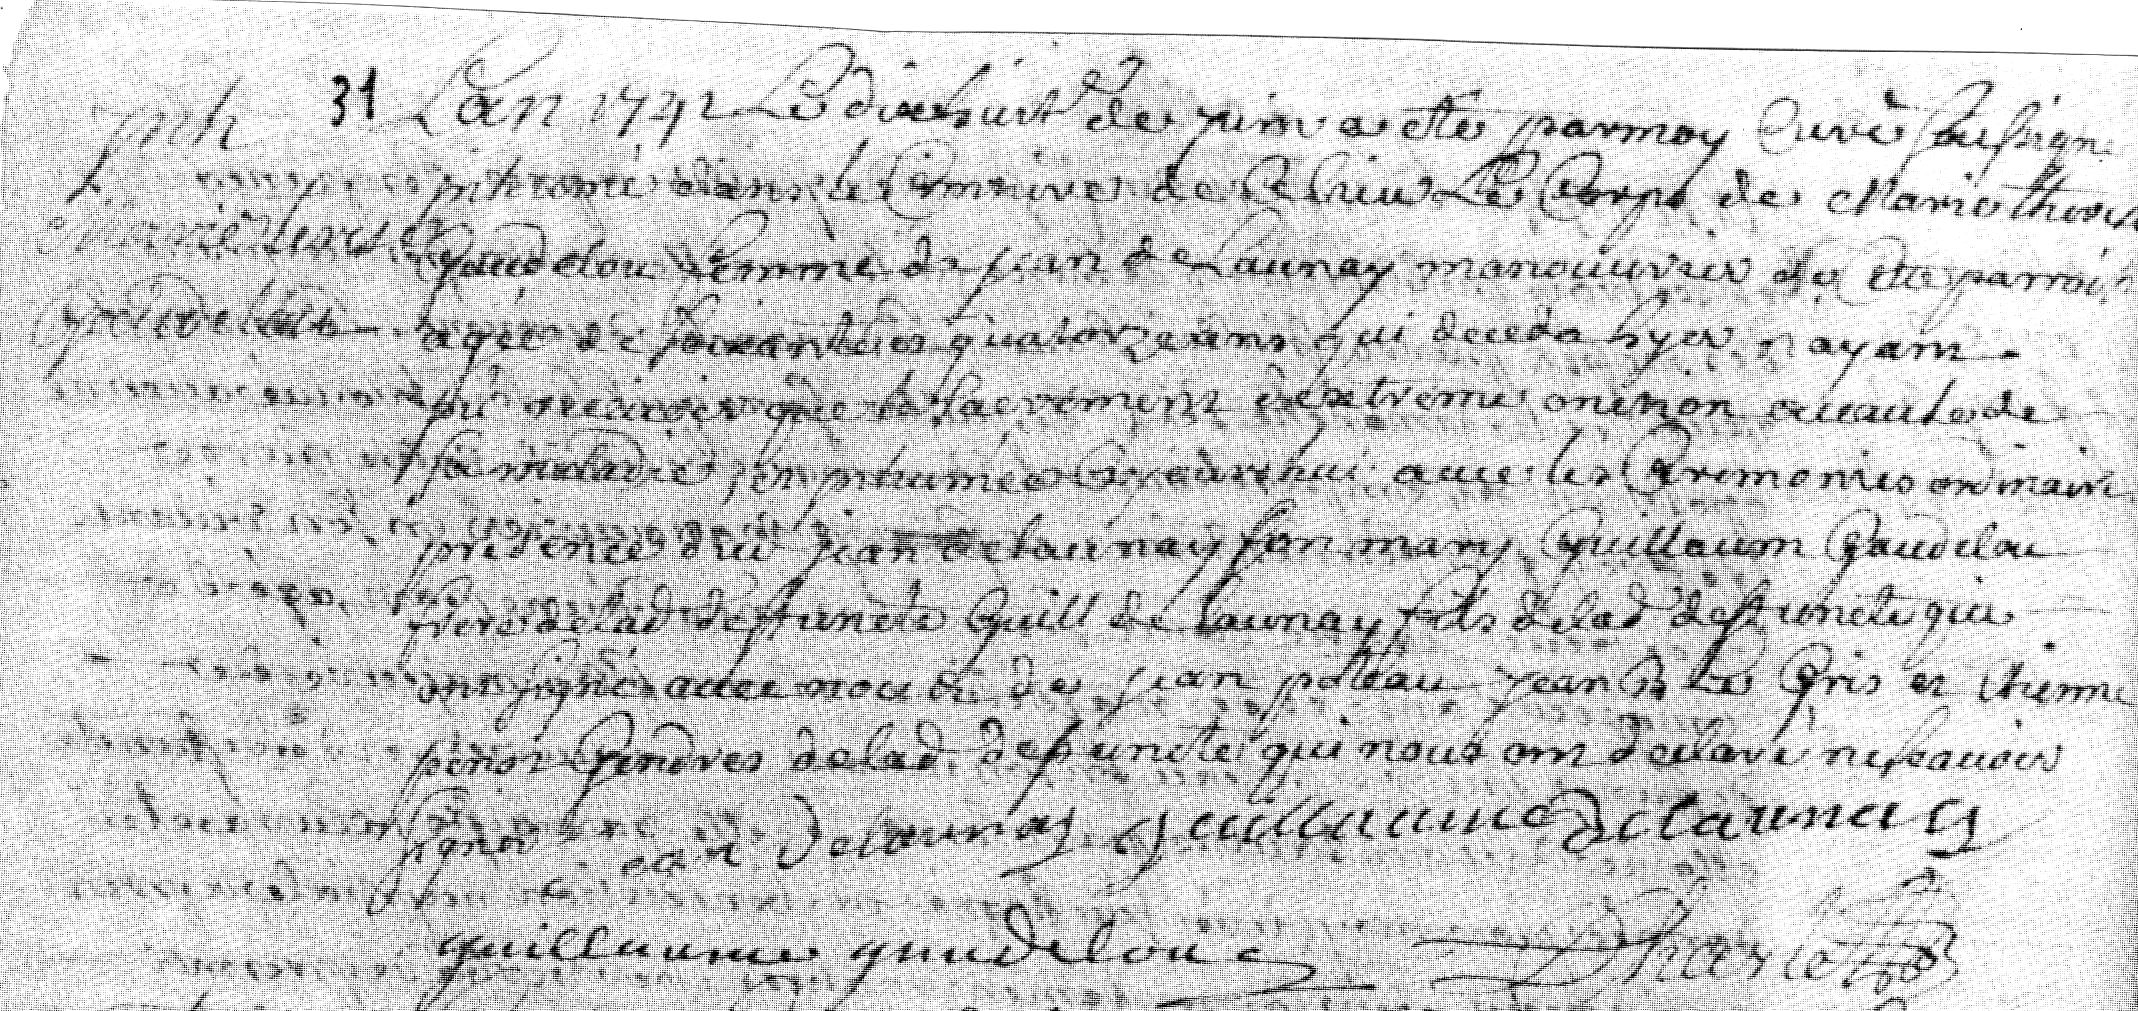 31 L'an 1741 Le dixehuit de juin a etté par moy Curé soussigné
inhumé dans le Cimitiere de Ce lieu Le Corps de Marie
gaudelou femme de jean de Launay manouuvrier de cette parroisse
agée de soixante et quatorze ans qui deceda hyer n'ayant
pû recevoir que le sacrement d'extreme onction a cause de
sa maladie inhumée aujourdhui avec les Ceremonies ordinaire
presence de jean de launay son mary Guillaum gaudelou
frere de lad deffuncte Guill de Launay fils de lad deffuncte qui
ont signé avec nous et de jean poteau jean B Le Gris et Etienne
gendres de lad deffuncte qui nous ont declaré ne scavoir
signer jean Delaunay guillaume Delaunay
guillaume gaudelou